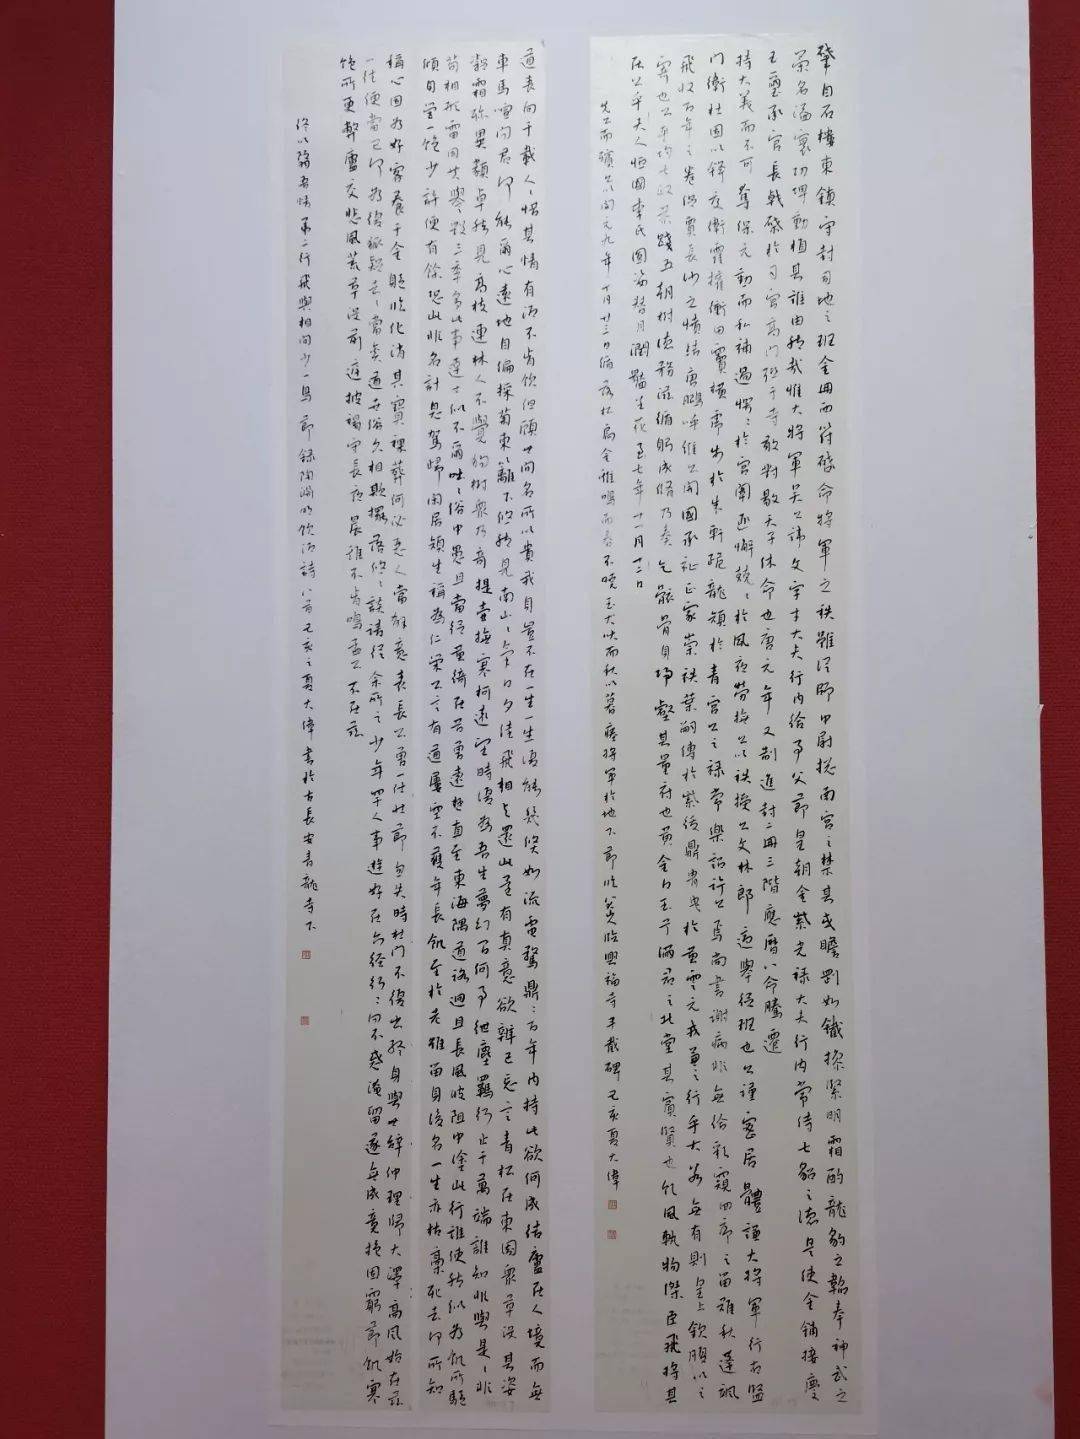 肇自石樓東鎮守封司地之班金冊西符啓命將軍之秩雖師中尉揔南宫之禁其或瞻如鐵操緊明霜酌龍豹之韜奉神武之
榮名溢寰功埤動植其誰由然哉惟大將軍吴公諱文字才大夫行内給事父節皇朝金紫光禄大夫行内常侍七貂之德是使金鋪接慶
玉璽承官長戟啓於司宫高門延于寺敢對敭天子休命也唐元年又制進封二冊三階應曆八命騰遷
持大義而不可奪保元勳而私補過愕愕於宫闈匪懈兢兢於夙夜勞挹公以秩授公文林郎適舉從班也公謹密居體謙大將軍行右監
門衛杜固以鐸交衛霍擁衝田竇横席步於朱軒跪龍於青宫公之禄常樂詔許公焉尚書謝病非無俗彩窺四序之留雖秋蓬颯
飛收百年之卷賈長沙之憤結唐維公開國承祉正家崇秩葉嗣傳於紫綬鼎貴於黄雲元我之行乎大若無有則皇上欽賜以之
寄也公平均七政榮踐五朝樹德務滋循躬成脩乃奏乞骸骨自埽壑其量府也黄金白玉于滿君之北堂其賓賢也凱風執物傑臣飛將其
在公乎夫人恒國李氏圓姿替月潤臉呈花至七年十一月十二日
先公而殯公以開元九年十月廿三日徧落松扃金雞鳴而春不曉玉犬吠而秋以暮瘞將軍於地下節臨興福寺半截碑己亥夏大偉
道喪向千載人人惜其情有酒不肯飲但顧世間名所以貴我身豈不在一生一生復能幾倏如流電驚鼎鼎百年内持此欲何成結廬在人境而無
車馬喧問君何能爾心遠地自偏採菊東籬下悠然見南山山氣日夕佳飛相與還此還有真意欲辨已忘言青松在東園衆草没其姿
凝霜殄異類卓然見高枝連林人不覺獨樹衆乃奇提壺撫寒柯遠望時復為吾生夢幻間何事紲塵羈行止千萬端誰知非與是是非
苟相形雷同共譽毀三季多此事達士似不爾咄咄俗中愚且當從黄綺在昔曾遠遊直至東海隅道路迴且長風波阻中塗此行誰使然似為飢所驅
傾身營一飽少許便有餘恐此非名計息駕歸閑居顔生稱為仁榮公言有道屢空不獲年長飢至於老雖留身後名一生亦枯槁死去何所知
稱心固為好客養千金軀臨化消其寶裸葬何必惡人當解意表長公曾一仕壯節忽失時杜門不復出終身與世辭仲理歸大澤高風始在茲
一往便當已何為復狐疑去去當奚道世俗久相欺擺落悠悠談請從余所之少年罕人事遊好在六經行行向不惑淹留遂無成竟抱固窮節飢寒
飽所更弊廬交悲風荒草没前庭披褐守長夜晨雞不肯鳴孟公不在茲
終以翳吾情 第二行飛與相間少一鳥 節録陶淵明飲酒詩八首己亥之夏大偉書於古長安青龍寺下